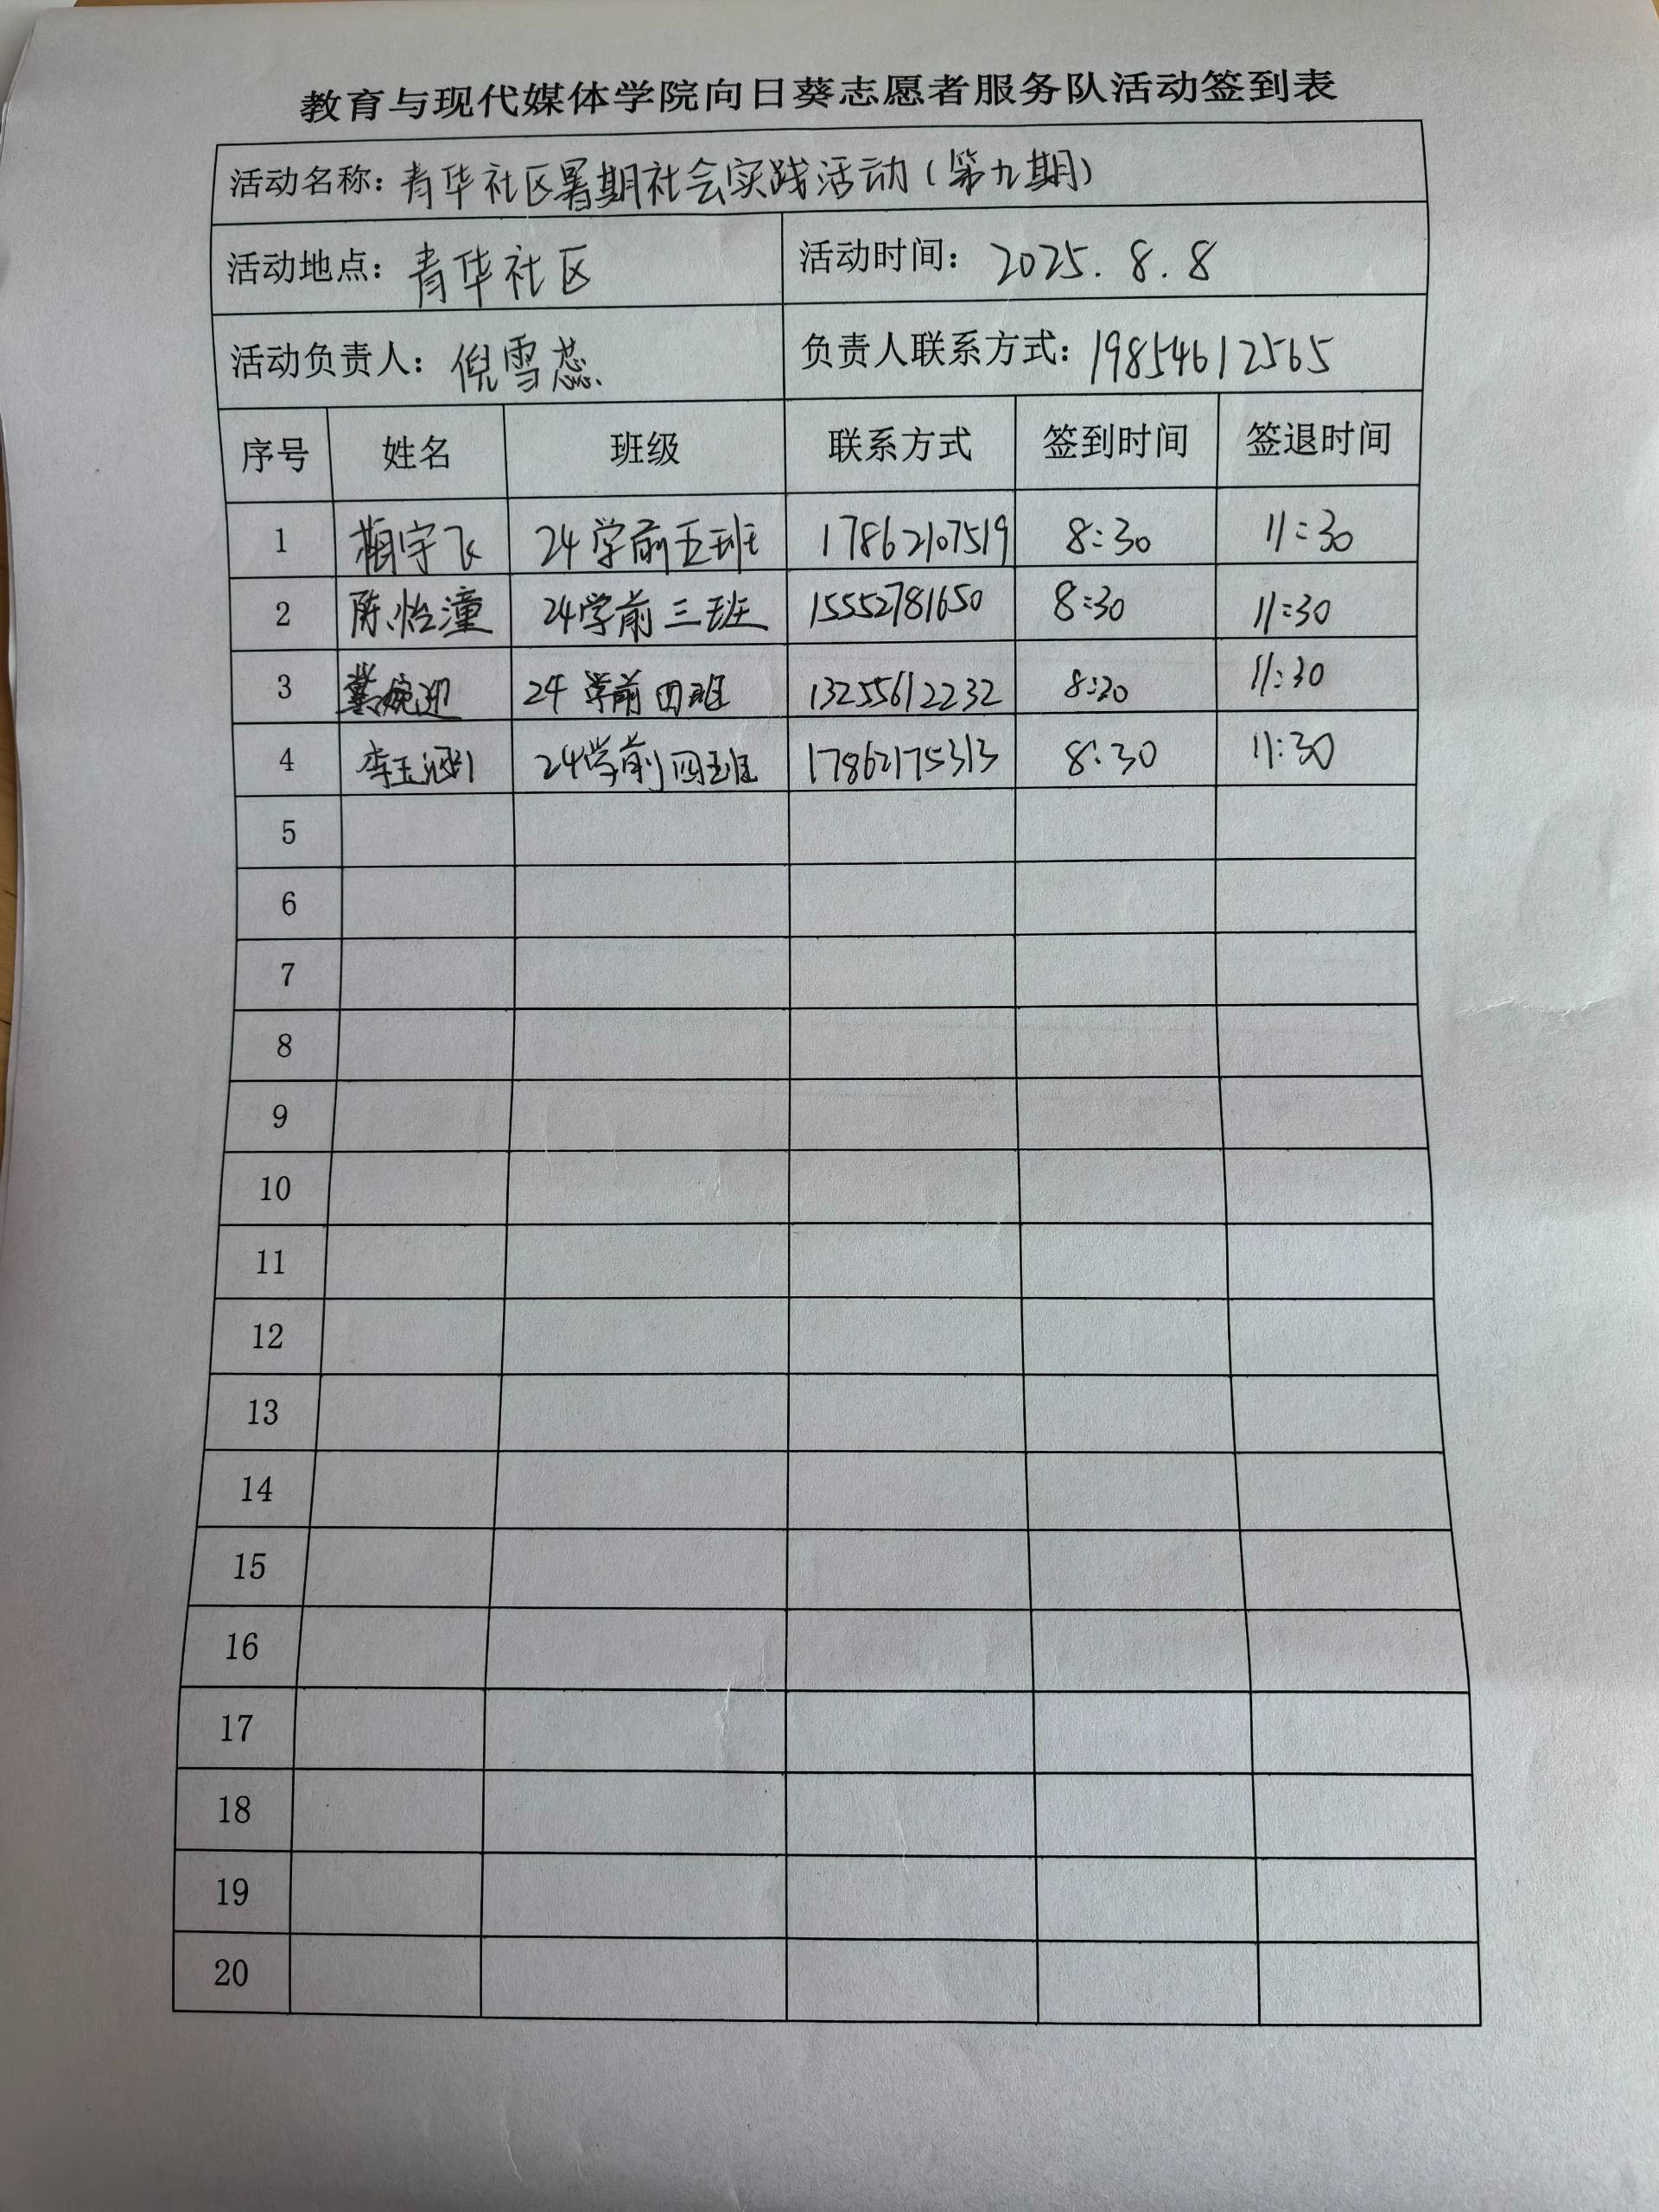 教育与现代媒体学院向日葵志愿者服务队活动签到表
活动名称：青华社区暑期社会实践活动（第九期）
活动地点：青华社区 活动时间：2025.8.8
活动负责人：倪雪蕊 负责人联系方式：19854612565
序号 姓名 班级 联系方式 签到时间 签退时间
1 宇飞 24学前五班 17862107519 8:30 11:30
2 陈怡潼 24学前三班 15552781650 8:30 11:30
3 婉迎 24学前四班 13255612232 8:30 11:30
4 李玉涵 24学前四班 17862175313 8:30 11:30
5
6
7
8
9
10
11
12
13
14
15
16
17
18
19
20